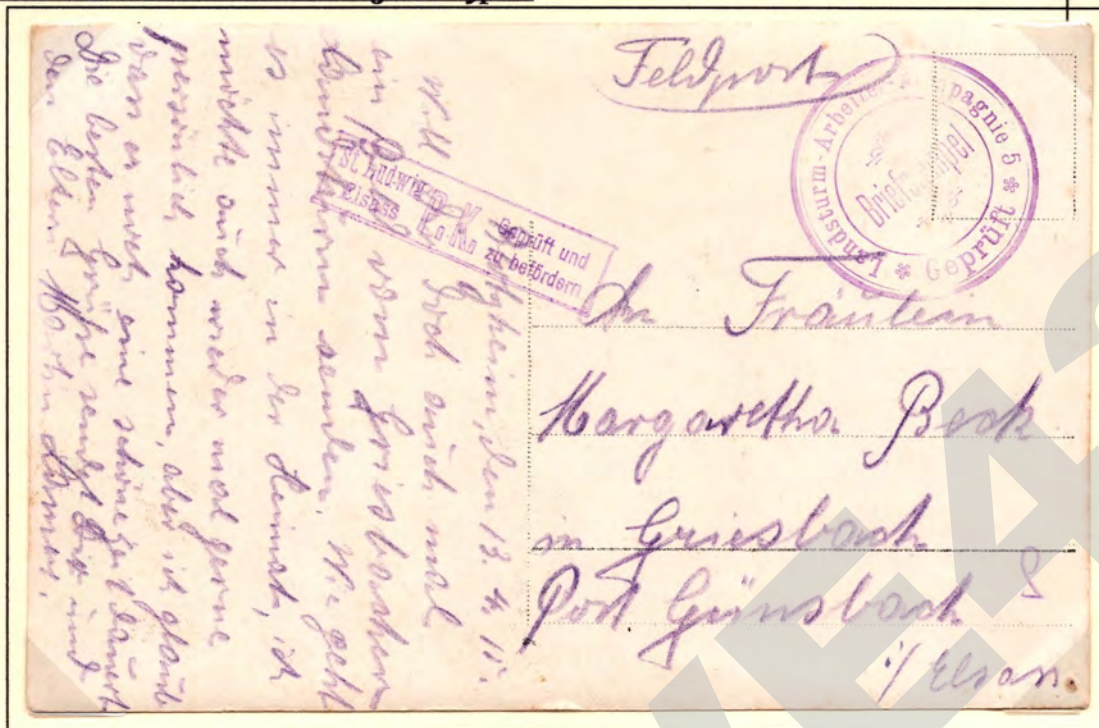 Feldpost
Landsturm-Arbeiter-Kompagnie 5 * Geprüft *
Briefstempel
St. Ludwig
Elsass
P.K.
Geprüft und
zu befördern
An Fräulein
Margaretha Beck
in Griesbach
Post Günsbach
i/ Elsass.
den 13. 4. 15.
Will doch auch mal
ein vom Griesbachern
Landsturm senden. Wie geht
es immer in der Heimat, ich
möchte auch wieder mal gerne
persönlich kommen, aber ich glaube
dass es noch eine schöne Zeit dauert
Die besten Grüße sendet Dir und
den Eltern Martin